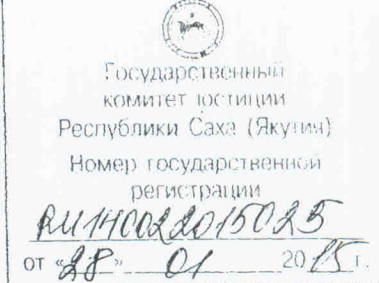 Государственный
комитет юстиции
Республики Саха (Якутия)
Номер государственной
регистрации
RU140022015025
от «28» 01 2015 г.